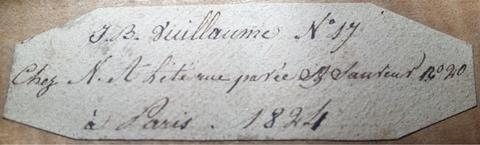 J.B. Vuillaume N° 17
Chez N. A Lété rue pavée St Sauveur n° 20
à Paris. 1824